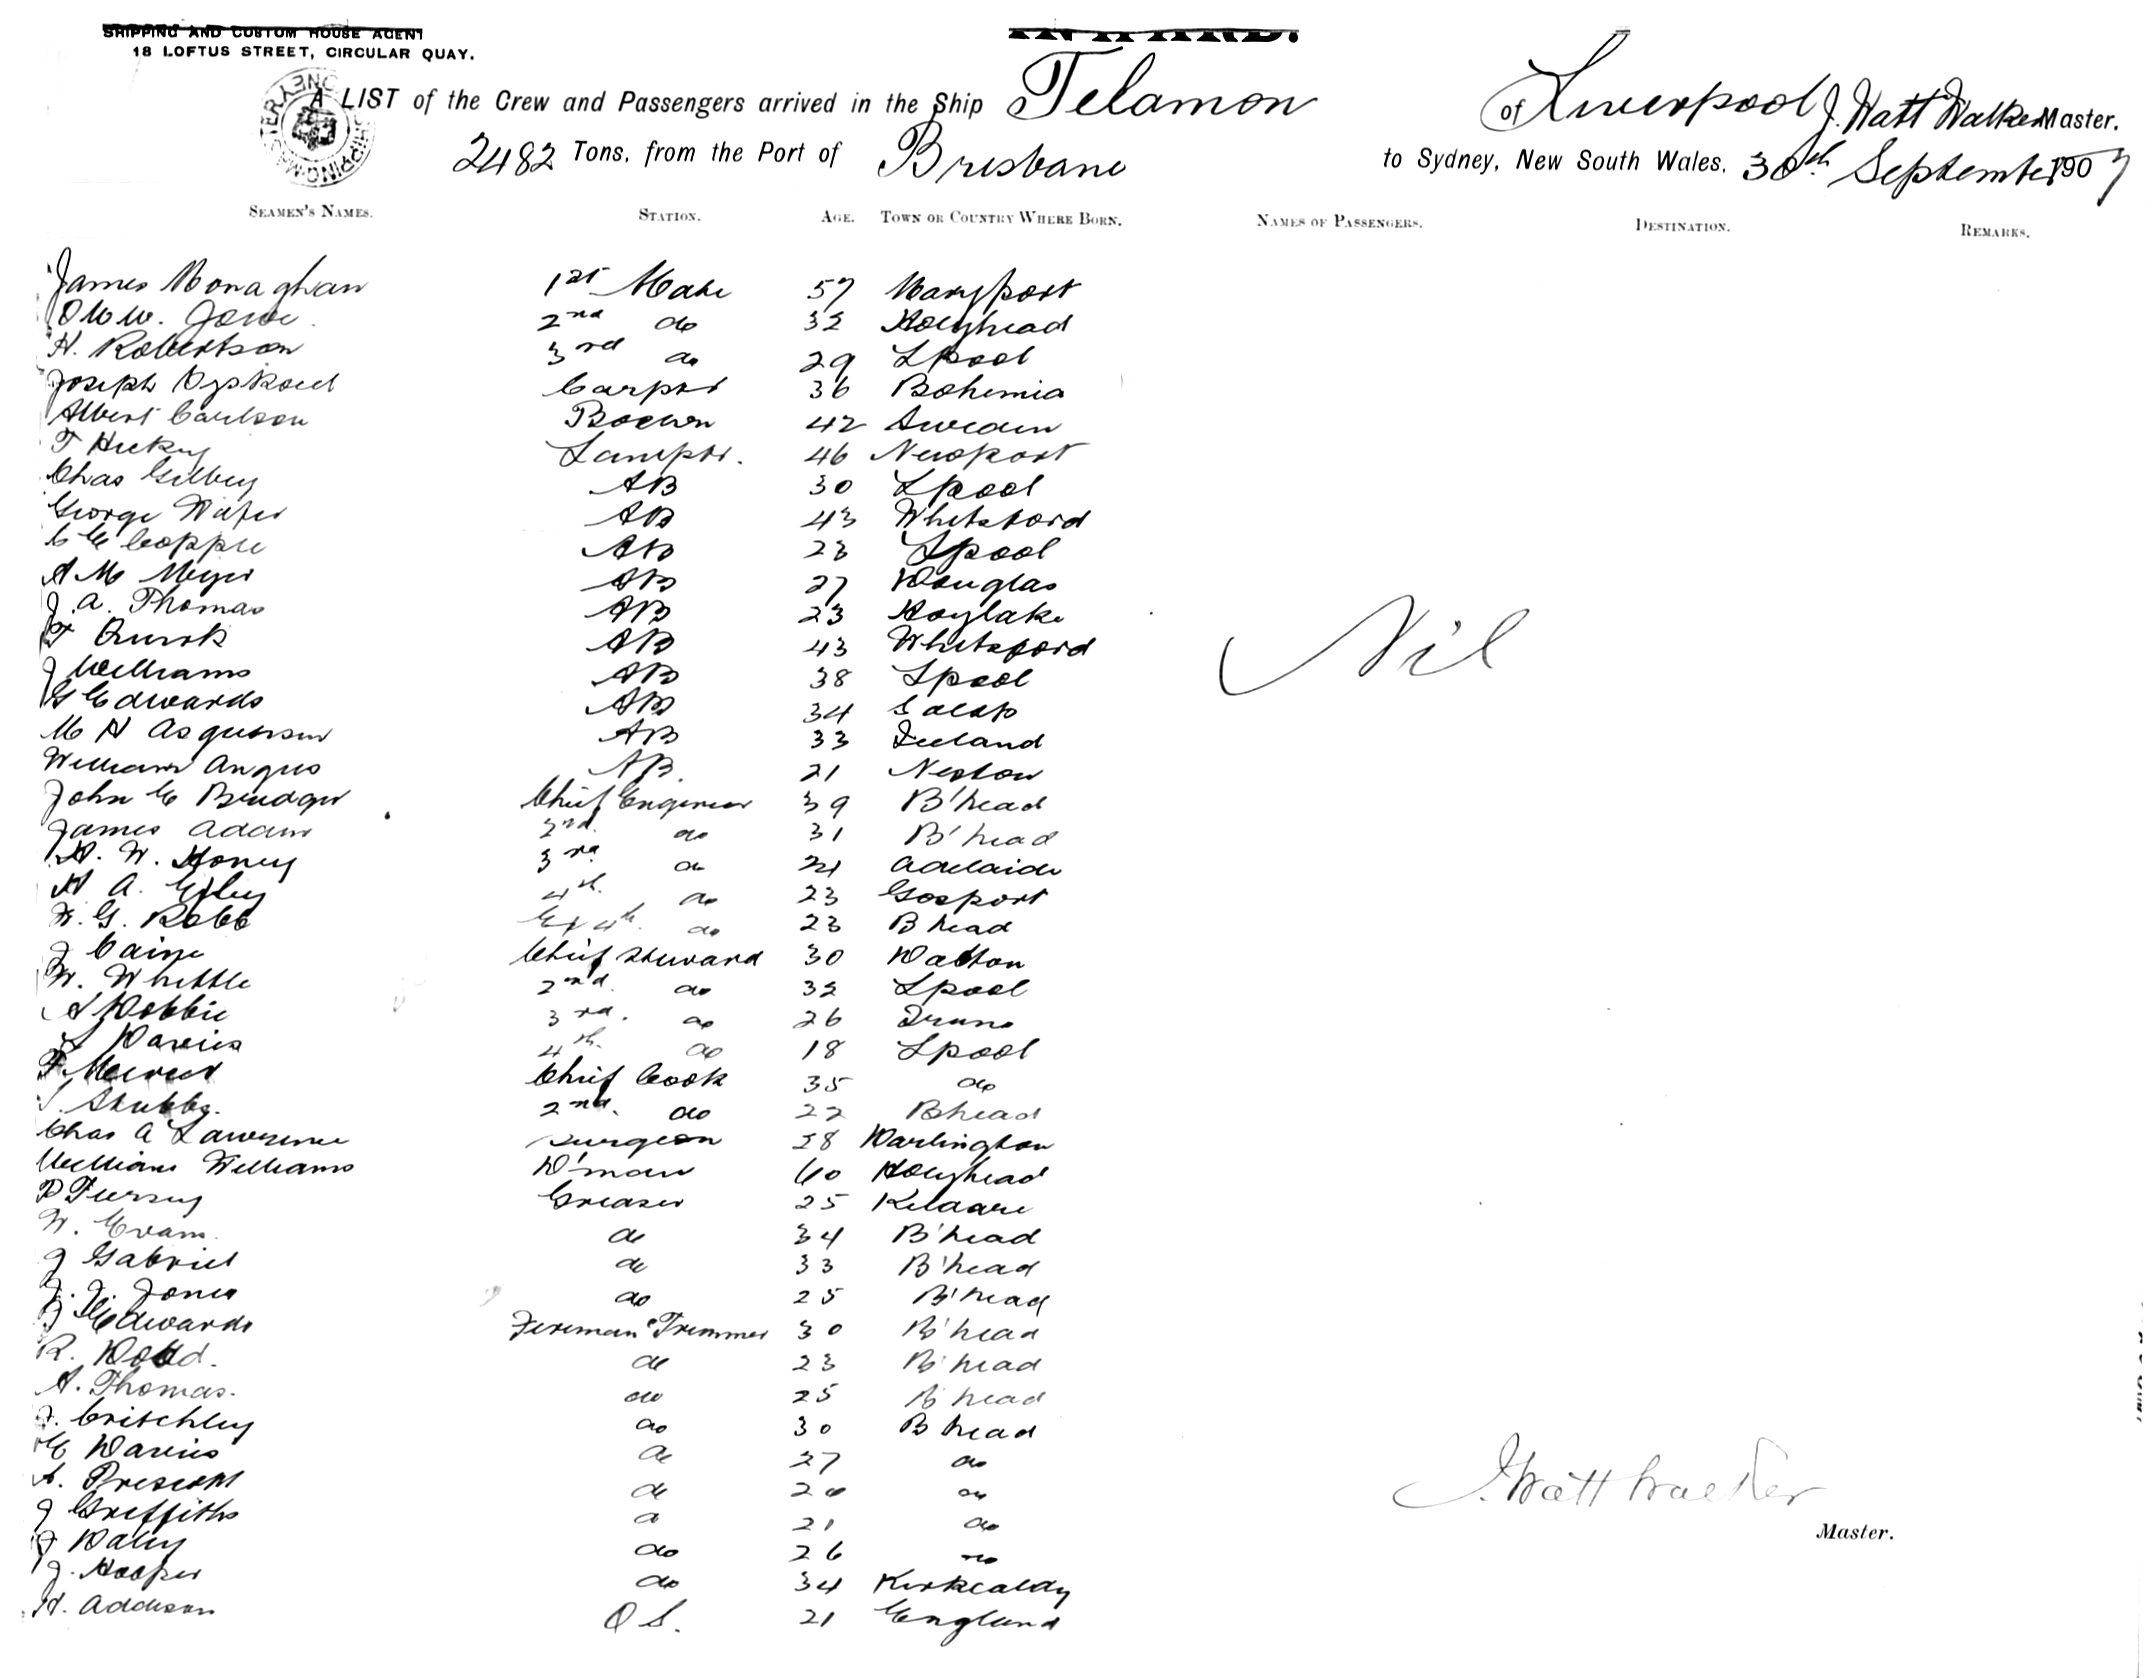 SHIPPING AND CUSTOM HOUSE AGENT
18 LOFTUS STREET, CIRCULAR QUAY.
INWARD.
A LIST of the Crew and Passengers arrived in the Ship Telamon of Liverpool J. Watt Walker Master.
2482 Tons, from the Port of Brisbane to Sydney, New South Wales, 30th September 1907
SEAMEN'S NAMES. STATION. AGE. TOWN OR COUNTRY WHERE BORN. NAMES OF PASSENGERS. DESTINATION. REMARKS.
James Monaghan 1st Mate 57 Maryport
2nd do 32 Holyhead
H. Robertson 3rd do 29 Lpool
Joseph 36 Bohemia
Albert Carlson 42 Sweden
T Hickey 46 Newport
Chas Gilbey AB 30 Lpool
George AB 43 Whitsford
C E Copple AB 23 Lpool
A M Meyer AB 27 Douglas
J. A. Thomas AB 23 Hoylake
T Quirk AB 43 Whitsford
J Williams AB 38 Lpool
G Edwards AB 34 Salop
M H AB 33 Iceland
William Angus AB 21 Neston
John E Chief Engineer 39 B'head
James Adam 2nd do 31 B'head
H. W. Honey 3rd do 24 Adelaide
H A. 4th do 23 Gosport
W. G. Robb Ex 4th do 23 B head
J Caine Chief Steward 30 Dalton
W. Whittle 2nd do 32 Lpool
A Dobbie 3rd. do 26
S Davies 4th do 18 Lpool
F. Chief Cook 35 do
S. Stubbs. 2nd. do 22 Bhead
Chas A Lawrence Surgeon 28 Darlington
William Williams D'man 60 Holyhead
P Greaser 25 Kildare
W. Evans do 34 B'head
J Gabriel do 33 B'head
J. J. Jones do 25 B'head
J Edwards Fireman & Trimmer 30 B'head
R. Dodd. do 23 B'head
A. Thomas. do 25 B'head
J. Critchley do 30 B head
E Davies do 27 do
A. Prescott do 20 do
J Griffiths do 21 do
J Daley do 26 do
J. Hooper do 34 Kirkcaldy
H. Addison O S. 21 England
Nil
J. Watt Walker
Master.